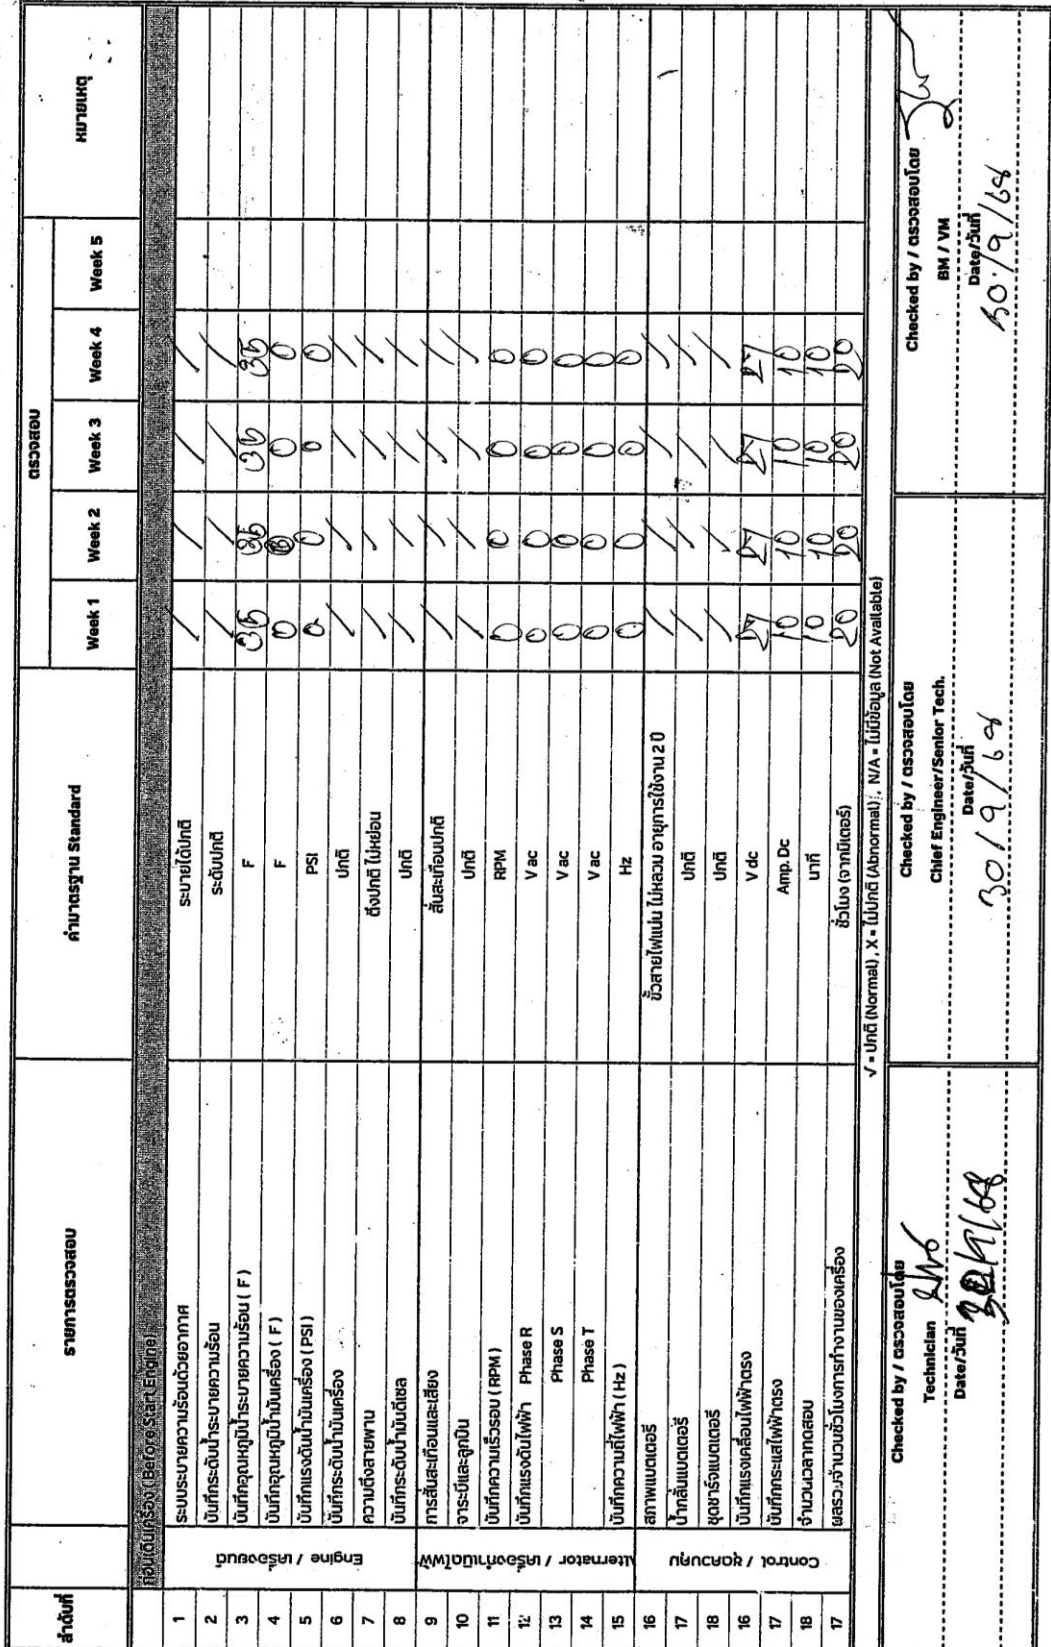 ลำดับที่ รายการตรวจสอบ ค่ามาตรฐาน Standard ตรวจสอบ หมายเหตุ
Week 1 Week 2 Week 3 Week 4 Week 5
ก่อนเดินเครื่อง (Before Start Engine)
Engine / เครื่องยนต์
1 ระบบระบายความร้อนด้วยอากาศ ระบายได้ปกติ / / / /
2 บันทึกระดับน้ำระบายความร้อน ระดับปกติ / / / /
3 บันทึกอุณหภูมิน้ำระบายความร้อน ( F ) F 36 36 36 36
4 บันทึกอุณหภูมิน้ำมันเครื่อง ( F ) F 0 0 0
5 บันทึกแรงดันน้ำมันเครื่อง ( PSI ) PSI 0 0 0 0
6 บันทึกระดับน้ำมันเครื่อง ปกติ / / / /
7 ความตึงสายพาน ตึงปกติ ไม่หย่อน / / / /
8 บันทึกระดับน้ำมันดีเซล ปกติ / / / /
Alternator / เครื่องกำเนิดไฟฟ้า
9 การสั่นสะเทือนและเสียง สั่นสะเทือนปกติ / / / /
10 จาระบีและลูกปืน ปกติ / / / /
11 บันทึกความเร็วรอบ ( RPM ) RPM 0 0 0 0
12 บันทึกแรงดันไฟฟ้า Phase R V ac 0 0 0 0
13 Phase S V ac 0 0 0 0
14 Phase T V ac 0 0 0 0
15 บันทึกความถี่ไฟฟ้า ( Hz ) Hz 0 0 0 0
Control / ชุดควบคุม
16 สภาพแบตเตอรี่ ขั้วสายไฟแน่น ไม่หลวม อายุการใช้งาน 2 ปี / / / /
17 น้ำกลั่นแบตเตอรี่ ปกติ / / / /
18 ชุดชาร์จแบตเตอรี่ ปกติ / / / /
16 บันทึกแรงเคลื่อนไฟฟ้าตรง V dc 27 27 27 27
17 บันทึกกระแสไฟฟ้าตรง Amp. Dc 10 10 10 10
18 จำนวนเวลาทดสอบ นาที 10 10 10 10
17 ผลรวมจำนวนชั่วโมงการทำงานของเครื่อง ชั่วโมง (จากมิเตอร์) 20 20 20 20
√ = ปกติ (Normal) , X = ไม่ปกติ (Abnormal) , N/A = ไม่มีข้อมูล (Not Available)
Checked by / ตรวจสอบโดย
Technician
Date/วันที่
Checked by / ตรวจสอบโดย
Chief Engineer/Senior Tech.
Date/วันที่
30/9/68
Checked by / ตรวจสอบโดย
BM / VM
Date/วันที่
30/9/68